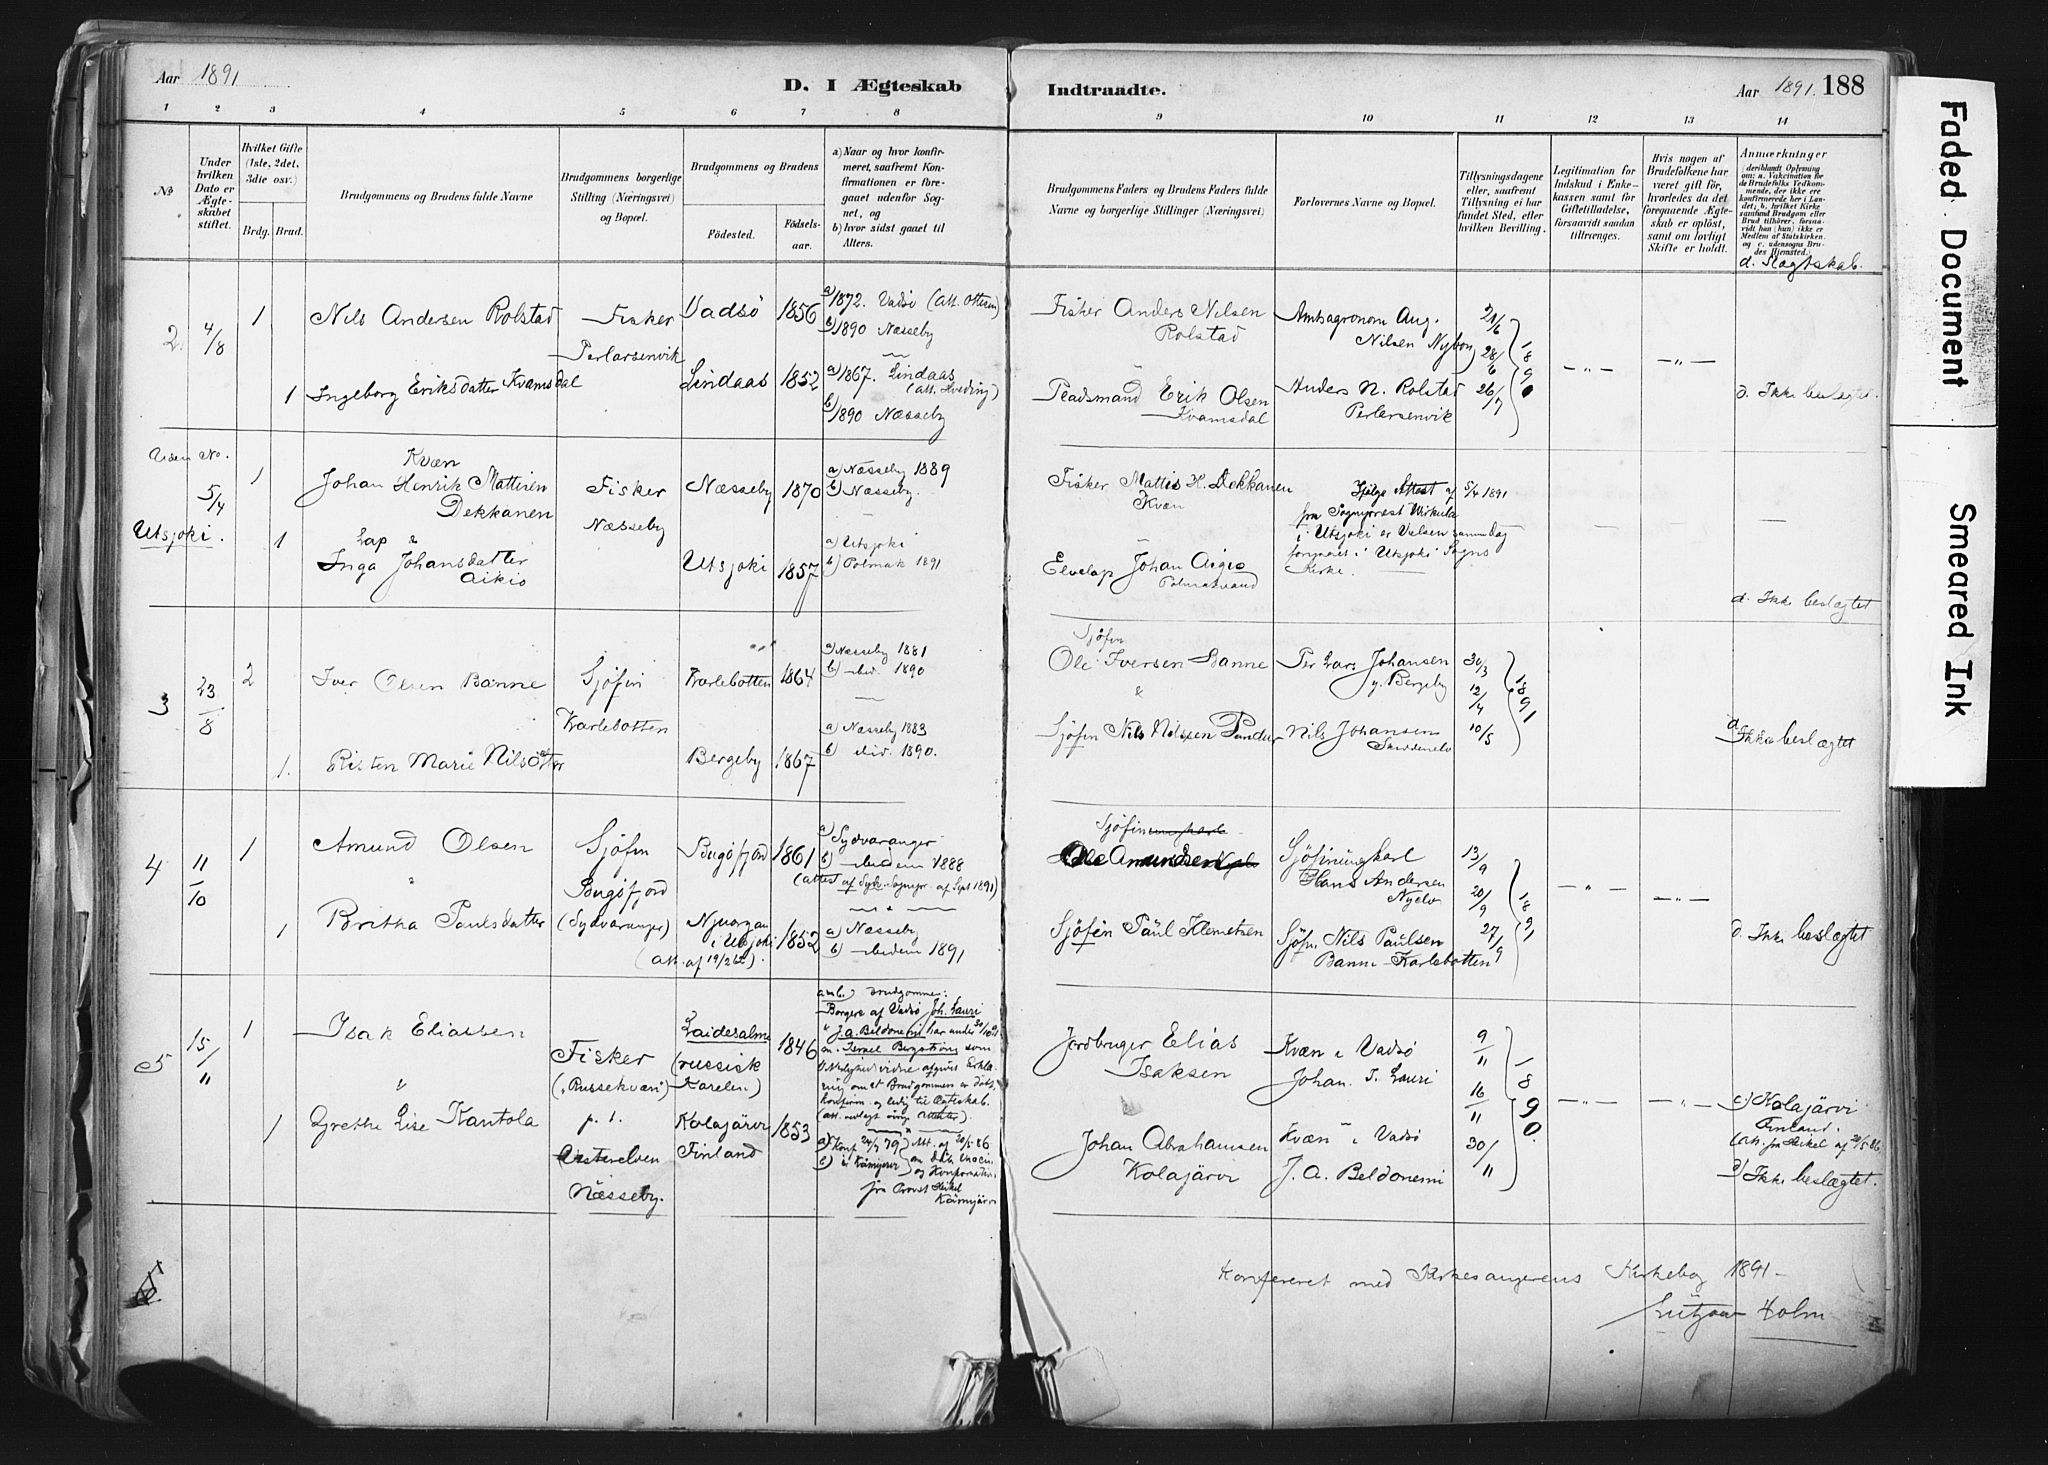 Aar 1891
D. I Ægteskab
Indtraadte.
Aar 1891. 188
1 2 3 4 5 6 7 8 9 10 11 12 13 14
No
Under hvilken Dato er Ægteskabet stiftet.
Hvilket Gifte (1ste, 2det, 3die osv.)
Brdg. Brud.
Brudgommens og Brudens fulde Navne
Brudgommens borgerlige Stilling (Næringsvei) og Bopæl.
Brudgommens og Brudens
Fødested. Fødselsaar.
a) Naar og hvor konfirmeret, saafremt Konfirmationen er foregaaet udenfor Sognet, og
b) hvor sidst gaaet til Alters.
Brudgommens Faders og Brudens Faders fulde Navne og borgerlige Stillinger (Næringsvei)
Forlovernes Navne og Bopæl.
Tillysningsdagene eller, saafremt Tillysning ei har fundet Sted, efter hvilken Bevilling.
Legitimation for Indskud i Enkekassen samt for Giftetilladelse, forsaavidt saadan tiltrænges.
Hvis nogen af Brudefolkene har været gift før, hvorledes da det foregaaende Ægteskab er opløst, samt om lovligt Skifte er holdt.
Anmærkninger (deriblandt Oplysning om: a. Vakcination for de Brudefolks Vedkommende, der ikke ere konfirmerede her i Landet; b. hvilket Kirkesamfund Brudgom eller Brud tilhører, forsaavidt han (hun) ikke er Medlem af Statskirken. og c. udensogns Brudes Hjemsted.)
d. Slægtskab.
2. 4/8 1 Nils Andersen Rolstad
Fisker
Perlarsenvik
Vadsö 1856
a) 1872. Vadsö (att. Otterm)
b) 1890 Næsseby
Fisker Anders Nilsen
Rolstad
Amtsagronom Aug.
Nilsen Nyborg
21/6
28/6
26/7
1890
1 Ingeborg Eriksdatter Kvamsdal
Lindaas 1852
a) 1867. Lindaas
(att. Hveding)
b) 1890 Næsseby
Pladsmand Erik Olsen
Kvamsdal
Anders N. Rolstad
Perlarsenvik
d. Ikke beslægtet.
Uden No.
5/4
Utsjoki.
1 Kvæn
Johan Henrik Mattisen
Dekkanen
Fisker
Næsseby
Næsseby 1870
a) Næsseby 1889
b) Næsseby.
Fisker Mattis H. Dekkanen
Kvæn
Ifølge Attest af 5/4 1891
fra Sogneprest Wirkula
i Utsjoki er Vielsen samme dag
foregaaet i Utsjoki Sogns
Kirke.
1 Lap &
Inga Johansdatter
Aikio
Utsjoki 1857
a) Utsjoki
b) Polmak 1891
Elvelap Johan Aigio
Polmakvand
d. Ikke beslægtet
3 23/8 2 Iver Olsen Banne
Sjöfin
Karlebotten
Karlebotten 1864
a) Næsseby 1881
b) ibid. 1890
Sjöfin
Ole Iversen Banne
&
Per Lars Johansen
y. Bergeby
30/3
12/4
10/5
1891
1. Risten Marie Nilsdatter
Bergeby 1867
a) Næsseby 1883
b) ibid. 1890.
Sjöfin Nils Nilssen Pander
Nils Johansen
d. Ikke beslægtet
4 11/10 1 Amund Olsen
Sjöfin
Bugöfjord
(Sydvaranger)
Bugöfjord 1861
a) Sydvaranger
b) ibidem 1888
(Attest af Sydv. Sognepr. af Sept 1891)
Sjöfin
Ole Amundsen
Sjöfinungkarl
Hans Andersen
Nyelv
13/9
20/9
27/9
1891
1 Britha Paulsdatter
Njuorgan
i Utsjoki 1852
a) Næsseby
b) ibidem 1891
Sjöfin Paul Klemetsen
Sjöfin Nils Paulsen
Banne - Karlebotten
d. Ikke beslægtet
5 15/11 1 Isak Eliassen
Fisker
("Russekvæn")
p. t.
Næsseby.
Laidesalmi
(russisk
Karelen)
1846
anb.) Brudgommen:
Borgere af Vadsö Joh. Lauri
" J. A. Beldonemi har under
Israel Bergström som
om at Brudgommen er döbt,
konfirm. og ledig til Ægteskab.
Jordbruger Elias
Isaksen
Kvæn i Vadsö
Johan. I. Lauri
9/11
16/11
30/11
1890.
1 Grethe Lise Kantola
Kolajärvi
Finland
1853
a) Konf 24/7 79
b) i Kämijärvi
Att. af 20/5 86
fra Provst Heikel
Kämijärvi
Johan Abrahamsen
Kolajärvi
Kvæn i Vadsö
J. A. Beldonemi
c.) Kolajärvi
Finland.
(Att. fra Heikel af 20/5 86.
d) Ikke beslægtet.
Konfereret med Kirkesangerens Kirkebog 1891 -
Lützow Holm
Faded Document
Smeared Ink